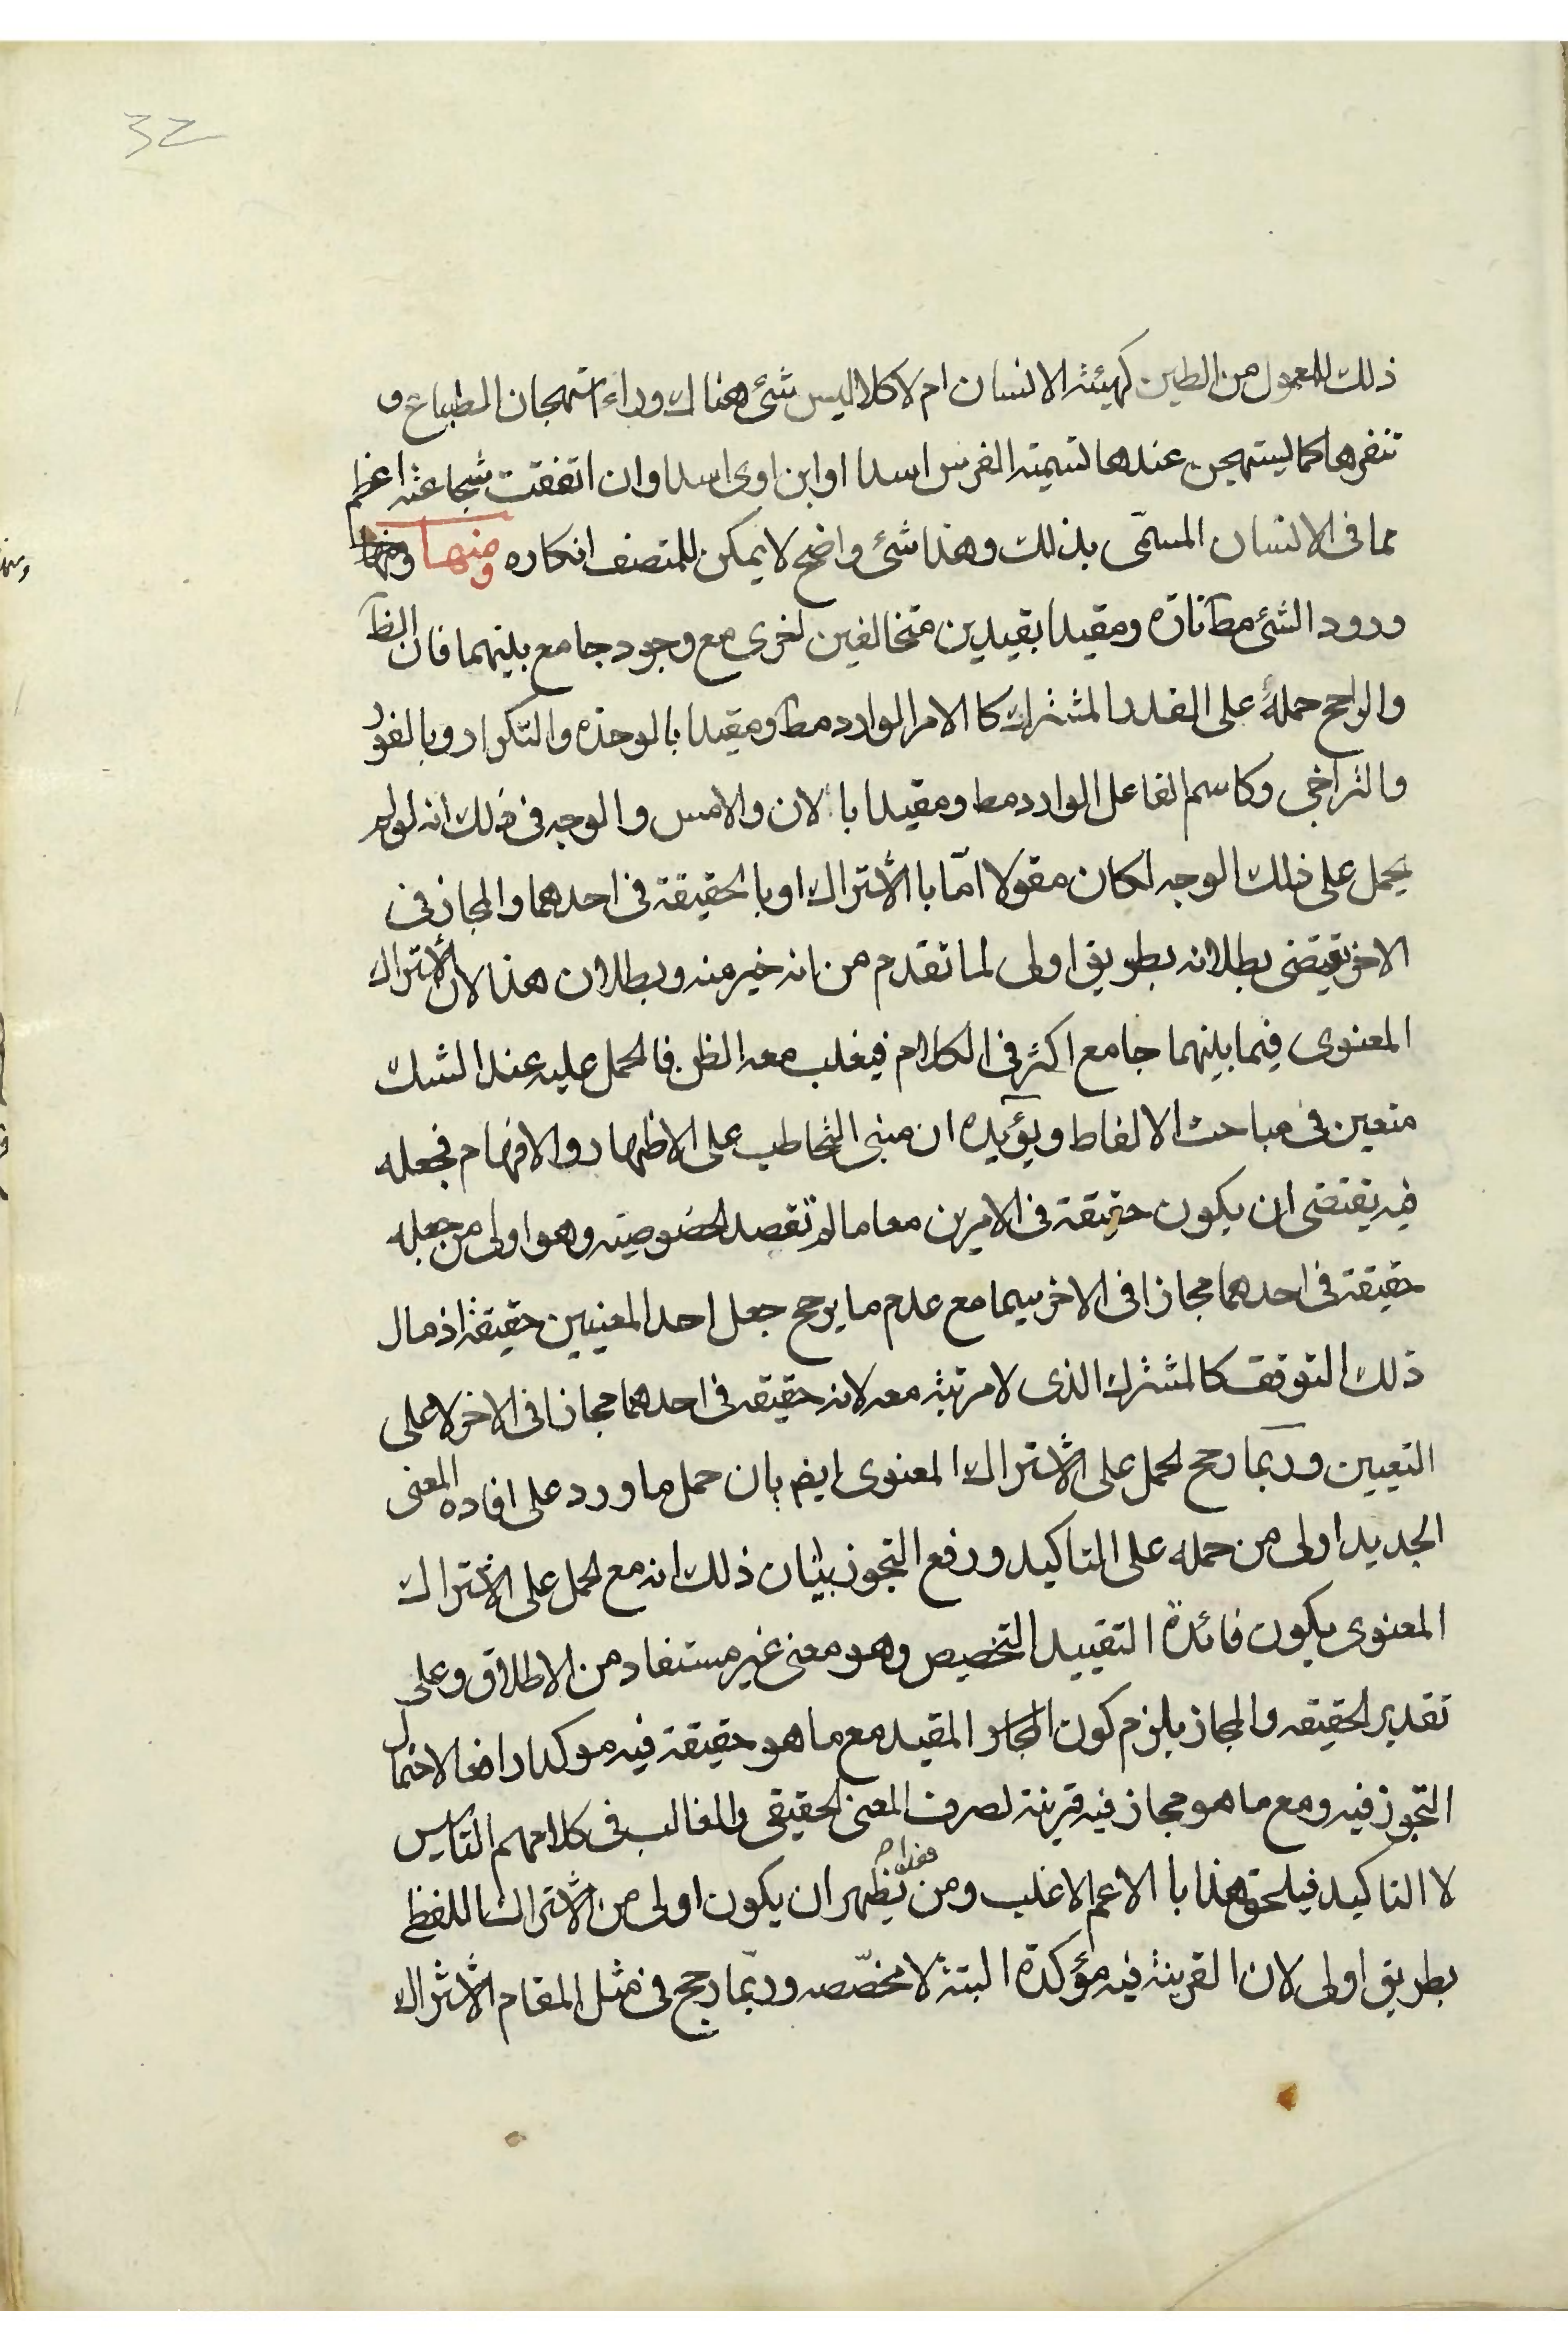 32
ذلك المعمول من الطين كهيئة الانسان ام لا كلا اليس شئ هناك وراء استهجان الطباع و
تنفرها كما يستهجن عندها تسميته الفرس اسدا او ابن اوى اسدا وان اتفقت شجاعته اعظم
مما فى الانسان المسمّى بذلك وهذا شئ واضح لا يمكن للمتصف انكاره ومنها ومنها
ورود الشئ مط تارة ومقيدا بقيدين متخالفين لخرى مع وجود جامع بينهما فان الظ
والراجح حمله على القدر المشترك كا الامر الوارد مط ومقيدا بالوحدة والتكرار وبالفور
والتراخى وكاسم الفاعل الوارد مط ومقيدا با لان والامس والوجه فى ذلك انه لو لم
يحمل على ذلك الوجه لكان مقولا امّا با الاشتراك او با الحقيقة فى احدهما والمجاز فى
الاخر يقتضى بطلانه بطريق اولى لما تقدم من انه خير منه وبطلان هذا لان الاشتراك
المعنوى فيما بينهما جامع اكثر فى الكلام فيغلب معه الظن فالحمل عليه عند الشك
متعين فى مباحث الالفاظ ويؤيده ان مبنى التخاطب على الاظهار والافهام فجعله
فيه يقتضى ان يكون حقيقة فى الامرين معا ما لم تقصد لخصوصيته وهو اولى من جعله
حقيقة فى احدهما مجازا فى الاخر سيما مع عدم ما يرجح جعل احد المعنيين حقيقة اذ مال
ذلك التوقف كالمشترك الذى لا مرتبة معه لانه حقيقه فى احدهما مجازا فى الاخر لا على
التعيين وربّما رجح لحمل على الاشتراك المعنوى ايضا بان حمل ما ورد على افاده المعنى
الجديد اولى من حمله على التاكيد ورفع التجوز بيان ذلك انه مع لحمل على الاشتراك
المعنوى يكون فائدة التقييد التخصيص وهو معنى غير مستفاد من الاطلاق وعلى
تقدير لحقيقه والمجاز يلزم كون المقيد مع ما هو حقيقة فيه موكدا رافعا لاحتمال
التجوز فيه ومع ما هو مجاز فيه قرينة لصرف المعنى لحقيقى والغالب فى كلامهم التاسيس
لا التاكيد فيلحق هذا با الاعم الاغلب ومن هذا يظهر ان يكون اولى من الاشتراك اللفظى
بطريق اولى لان القرينة فيه مؤكدة البتة لا مخصّصه وربّما رجح فى مثل المقام الاشتراك